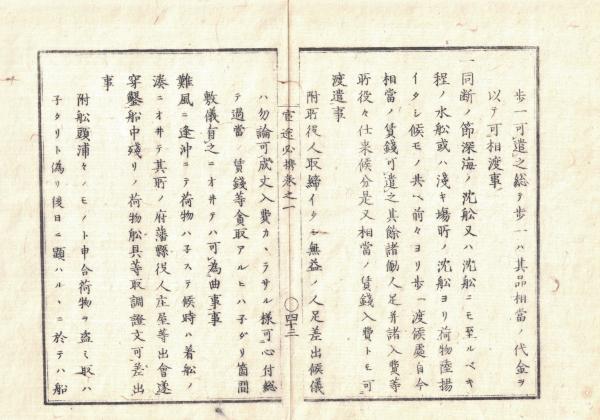 歩一可遣之総テ歩一ハ其品相當ノ代金ヲ
以テ可相渡事
一同断ノ節深海ノ沈舩又ハ沈舩ニモ至ルベキ
程ノ水舩或ハ淺キ場所ノ沈舩ヨリ荷物陸揚
イタシ候モノ共ヘ前々ヨリ歩一渡候處自今
相當ノ賃錢可遣之其餘諸働人足并諸入費等
所役々仕来候分是又相當ノ賃錢入費トモ可
渡遣事
附所役人取締イタシ無益ノ人足差出候儀
官途必携巻之一
〇四十三
ハ勿論可成丈入費カヽラサル様可心付総
テ過當ノ賃錢等貪取アルヒハ子ダリ箇間
敷儀有之ニオヰテハ可為曲事事
難風ニ逢沖ニテ荷物ハ子ステ候時ハ着舩ノ
湊ニオヰテ其所ノ府藩縣役人庄屋等出會遂
穿鑿舩中殘リノ荷物舩具等取調證文可差出
事
附舩頭浦々ノモノト申合荷物ヲ盗ミ取ハ
子タリト偽リ後日ニ顕ハルヽニ於テハ舩